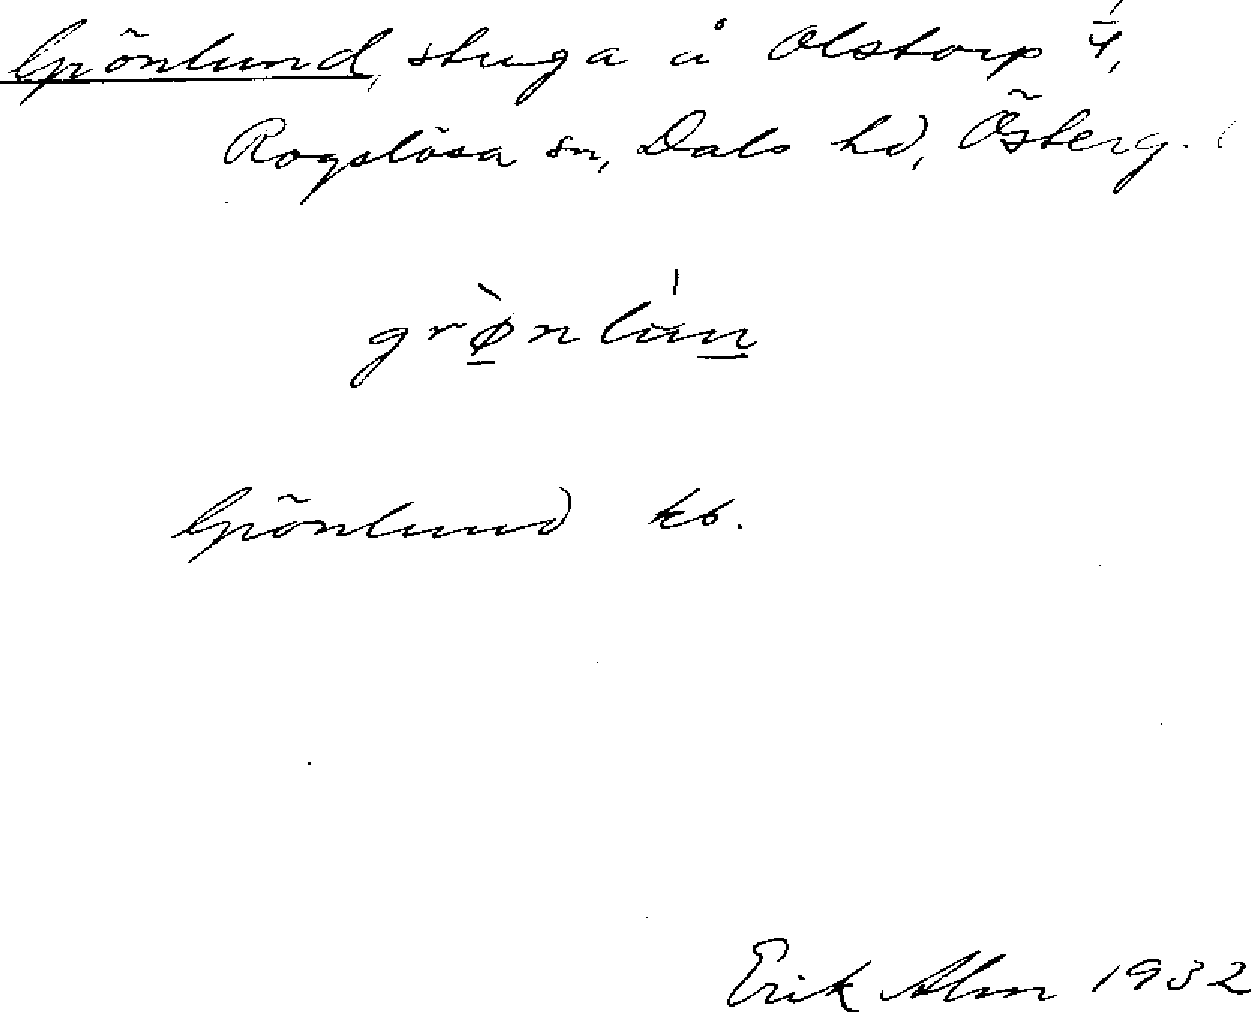 Grönlund, stuga å Olstorp 1/4,
Rogslösa sn, Dals hd, Österg.
Grönlund kb.
Erik Alm 1932